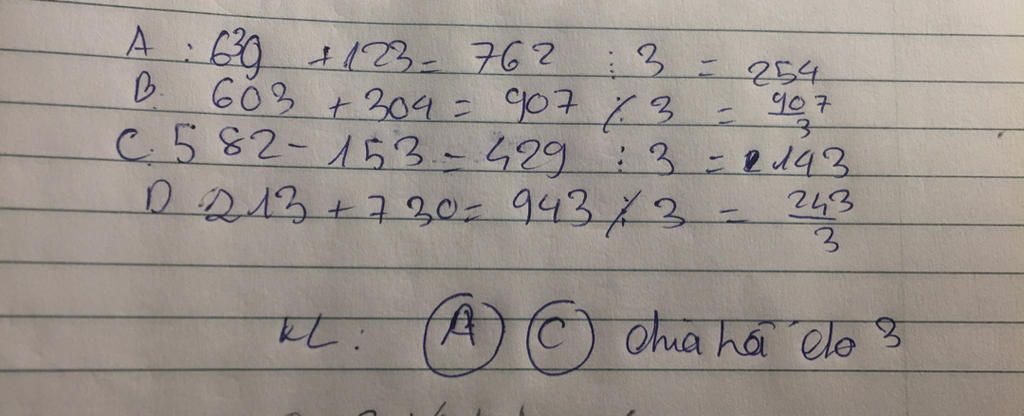 A : 639 + 123 = 762 : 3 = 254
B. 603 + 304 = 907 ⁒ 3 = 907/3
C. 582 - 153 = 429 : 3 = 143
D 213 + 730 = 943 ⁒ 3 = 243/3
KL : A C chia hế cho 3